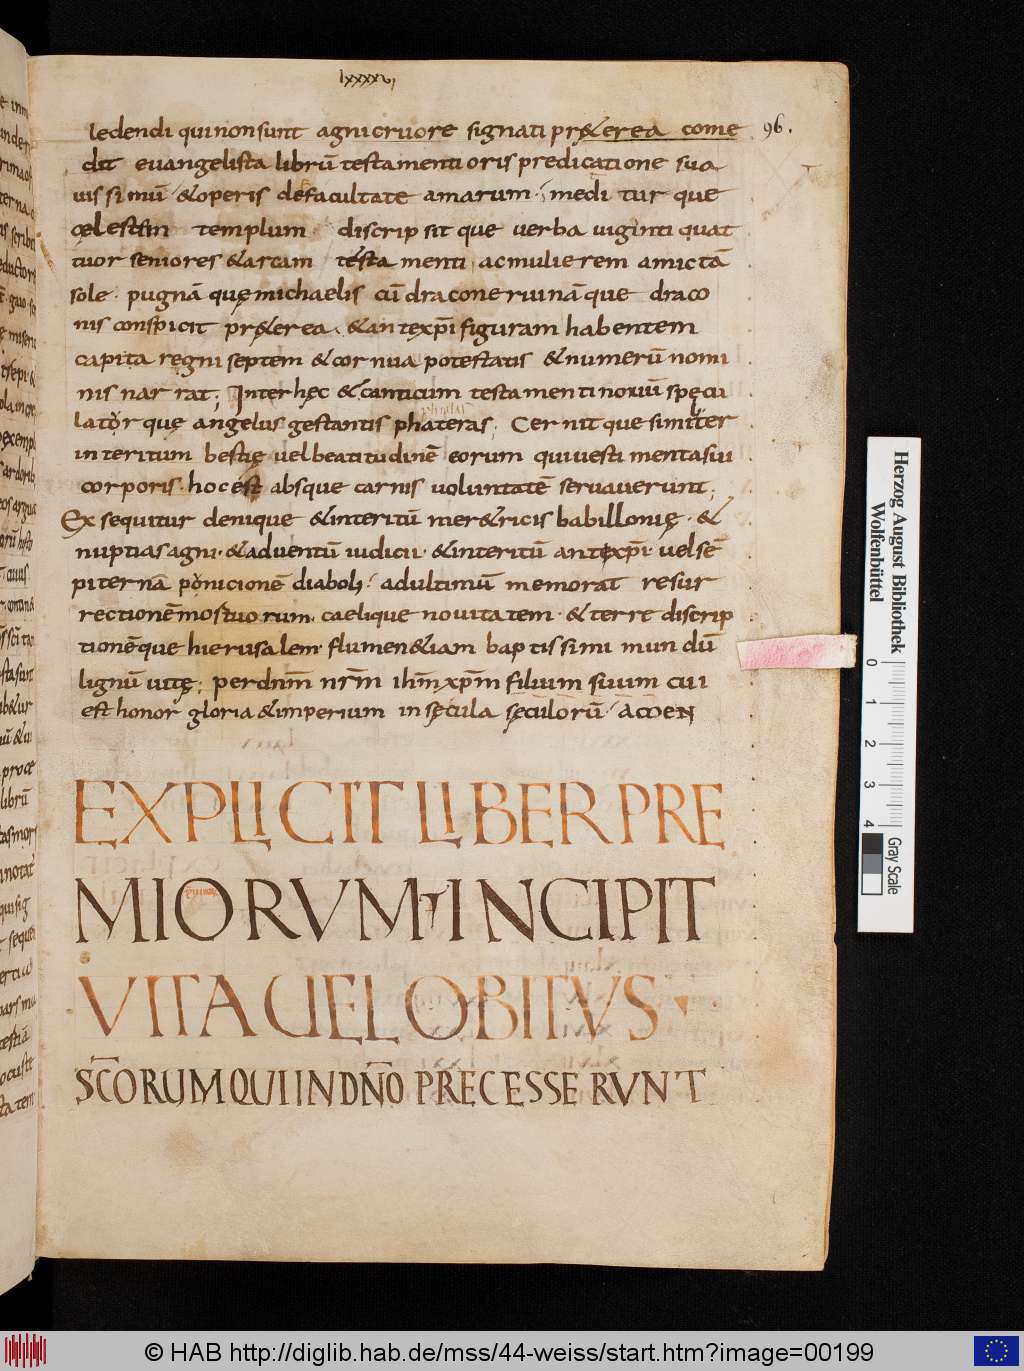 lxxxxvi
96.
ledendi qui non sunt agni cruore signati pr&erea come
dit euangelista librū testamenti oris predicatione sua
uissimū &operis defacultate amarum medi tur que
cęlestem templum discripsit que uerba uiginti quat
tuor seniores &arcam testamenti acmulierem amictā
sole pugnā quę michaelis cū dracone ruinā que draco
nis conspicit pr&erea &antexp̄i figuram habentem
capita regni septem &cornua potestatis &numerū nomi
nis narrat; Inter hęc &canticum testamenti nouū spęcu
lator quę angelus gestantis phateras; Cernit que similiter
interitum bestię uel beatitudinē eorum qui uestimenta sui
corporis hoc est absque carnis uoluntatē seruauerunt;
Exsequitur denique &interitū mer&ricis babillonię &
nuptias agni &aduentū iudicii &interitū antexp̄i uel sē
piternā ponicionē diaboli adultimū memorat resur
rectionē mostuorum caelique nouitatem &terre discrip
tionēque hierusalem flumen &iam baptissimi mundū
lignū uitę; per dn̄m nr̄m ih̄m xp̄m filium suum cui
est honor gloria &imperium in sęcula sęculorū AMEN
EXPLICIT LIBER PRE
MIORVM INCIPIT
VITA UEL OBITVS
SC̄ORUM QUI IN DN̄O PRECESSERVNT
Herzog August Bibliothek
Wolfenbüttel
0 1 2 3 4
Gray Scale
© HAB http://diglib.hab.de/mss/44-weiss/start.htm?image=00199